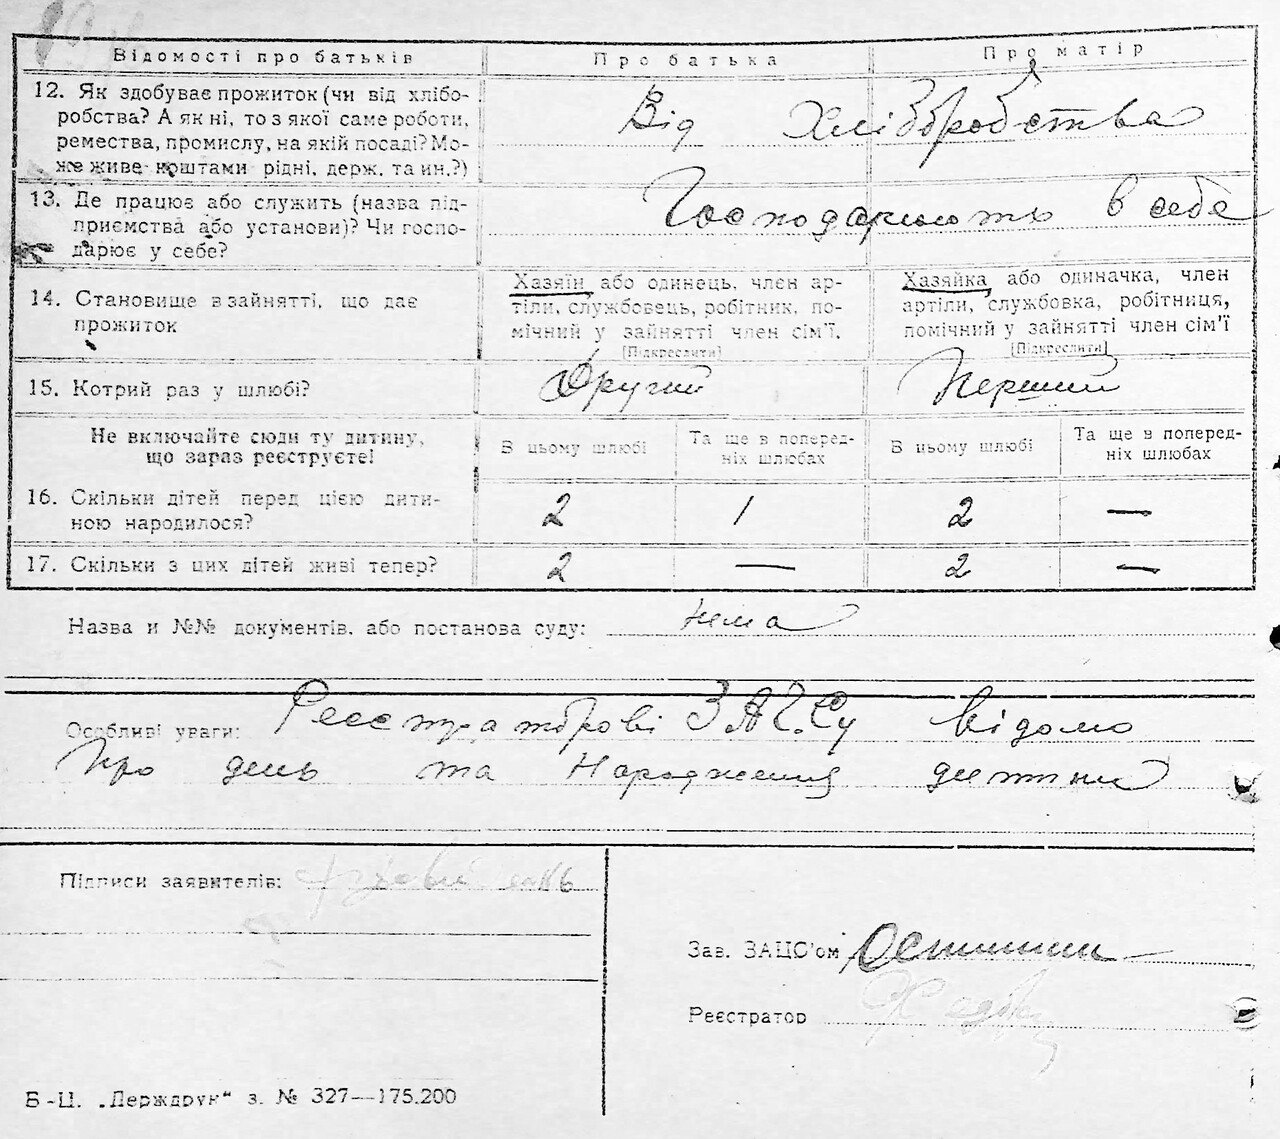 Відомості про батьків
Про батька
Про матір
12. Як здобуває прожиток (чи від хлібо-
робства? А як ні, то з якої саме роботи,
ремества, промислу, на якій посаді? Мо-
же живе коштами рідні, держ. та ин.?)
Від Хліборобства
13. Де працює або служить (назва під-
приємства або установи)? Чи госпо-
дарює у себе?
Господарюють в себе
14. Становище в зайнятті, що дає
прожиток
Хазяїн або одинець, член ар-
тіли, службовець, робітник, по-
мічний у зайнятті член сім'ї.
[Підкреслити]
Хазяйка або одиначка, член
артіли, службовка, робітниця,
помічний у зайнятті член сім'ї
[Підкреслити]
15. Котрий раз у шлюбі?
Другий
Перший
Не включайте сюди ту дитину,
що зараз реєструєте!
В цьому шлюбі
Та ще в поперед-
ніх шлюбах
В цьому шлюбі
Та ще в поперед-
ніх шлюбах
16. Скільки дітей перед цією дити-
ною народилося?
2 1 2 —
17. Скільки з цих дітей живі тепер?
2 — 2 —
Назва и №№ документів, або постанова суду: нема
Особливі уваги: Реєстраторові ЗАГСу відомо
Про день та Народження дитини
Підписи заявителів:
Зав. ЗАЦС'ом
Реєстратор
Б-Ц. „Держдрук“ з. № 327—175.200